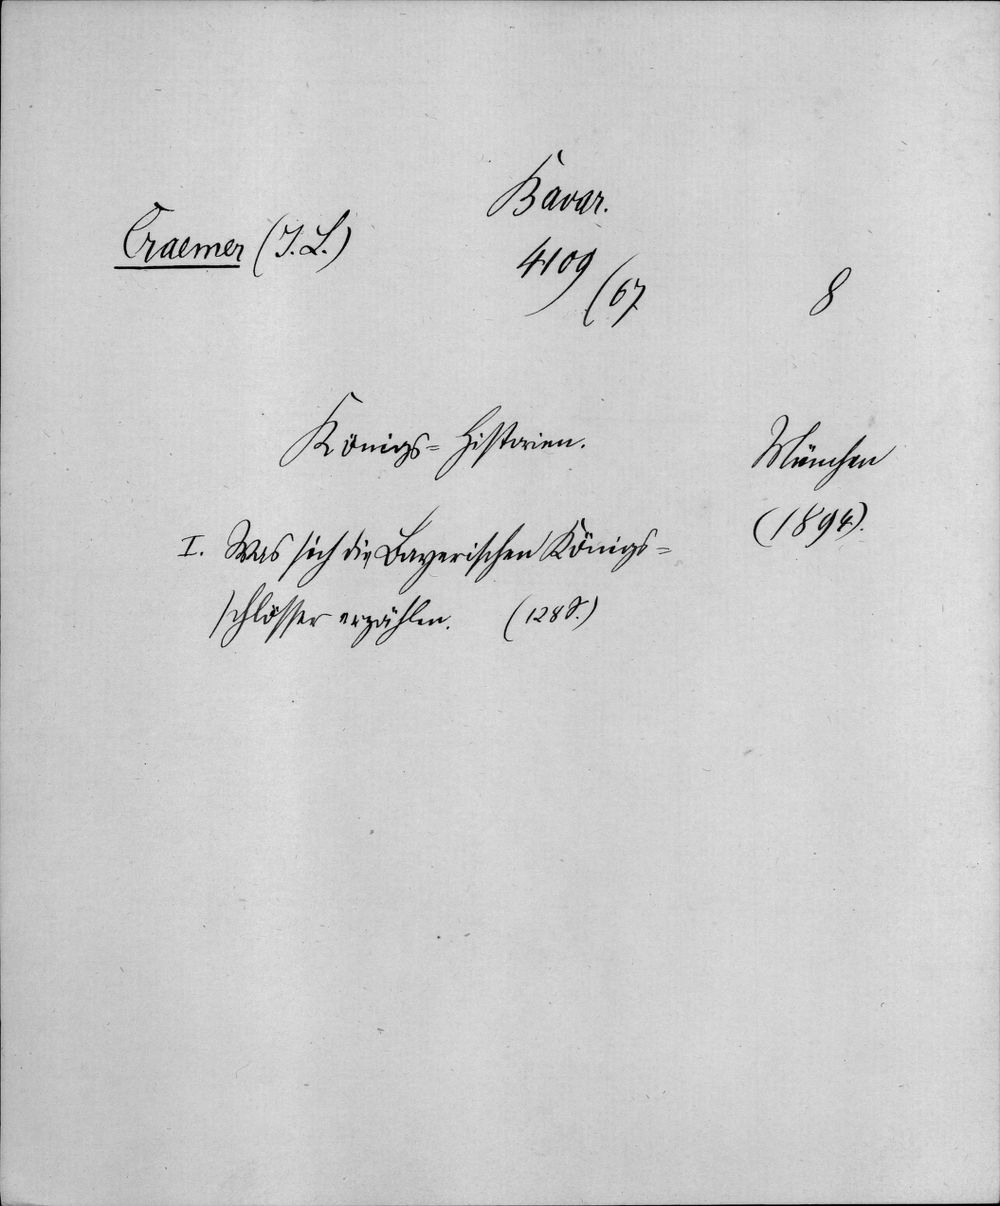 Bavar.
Craemer (J. L.)
4109
(67
8
Königs=Historien.
München
(1894).
I. Was sich die Bayerischen Königs=
schlösser erzählen. (128 S.)